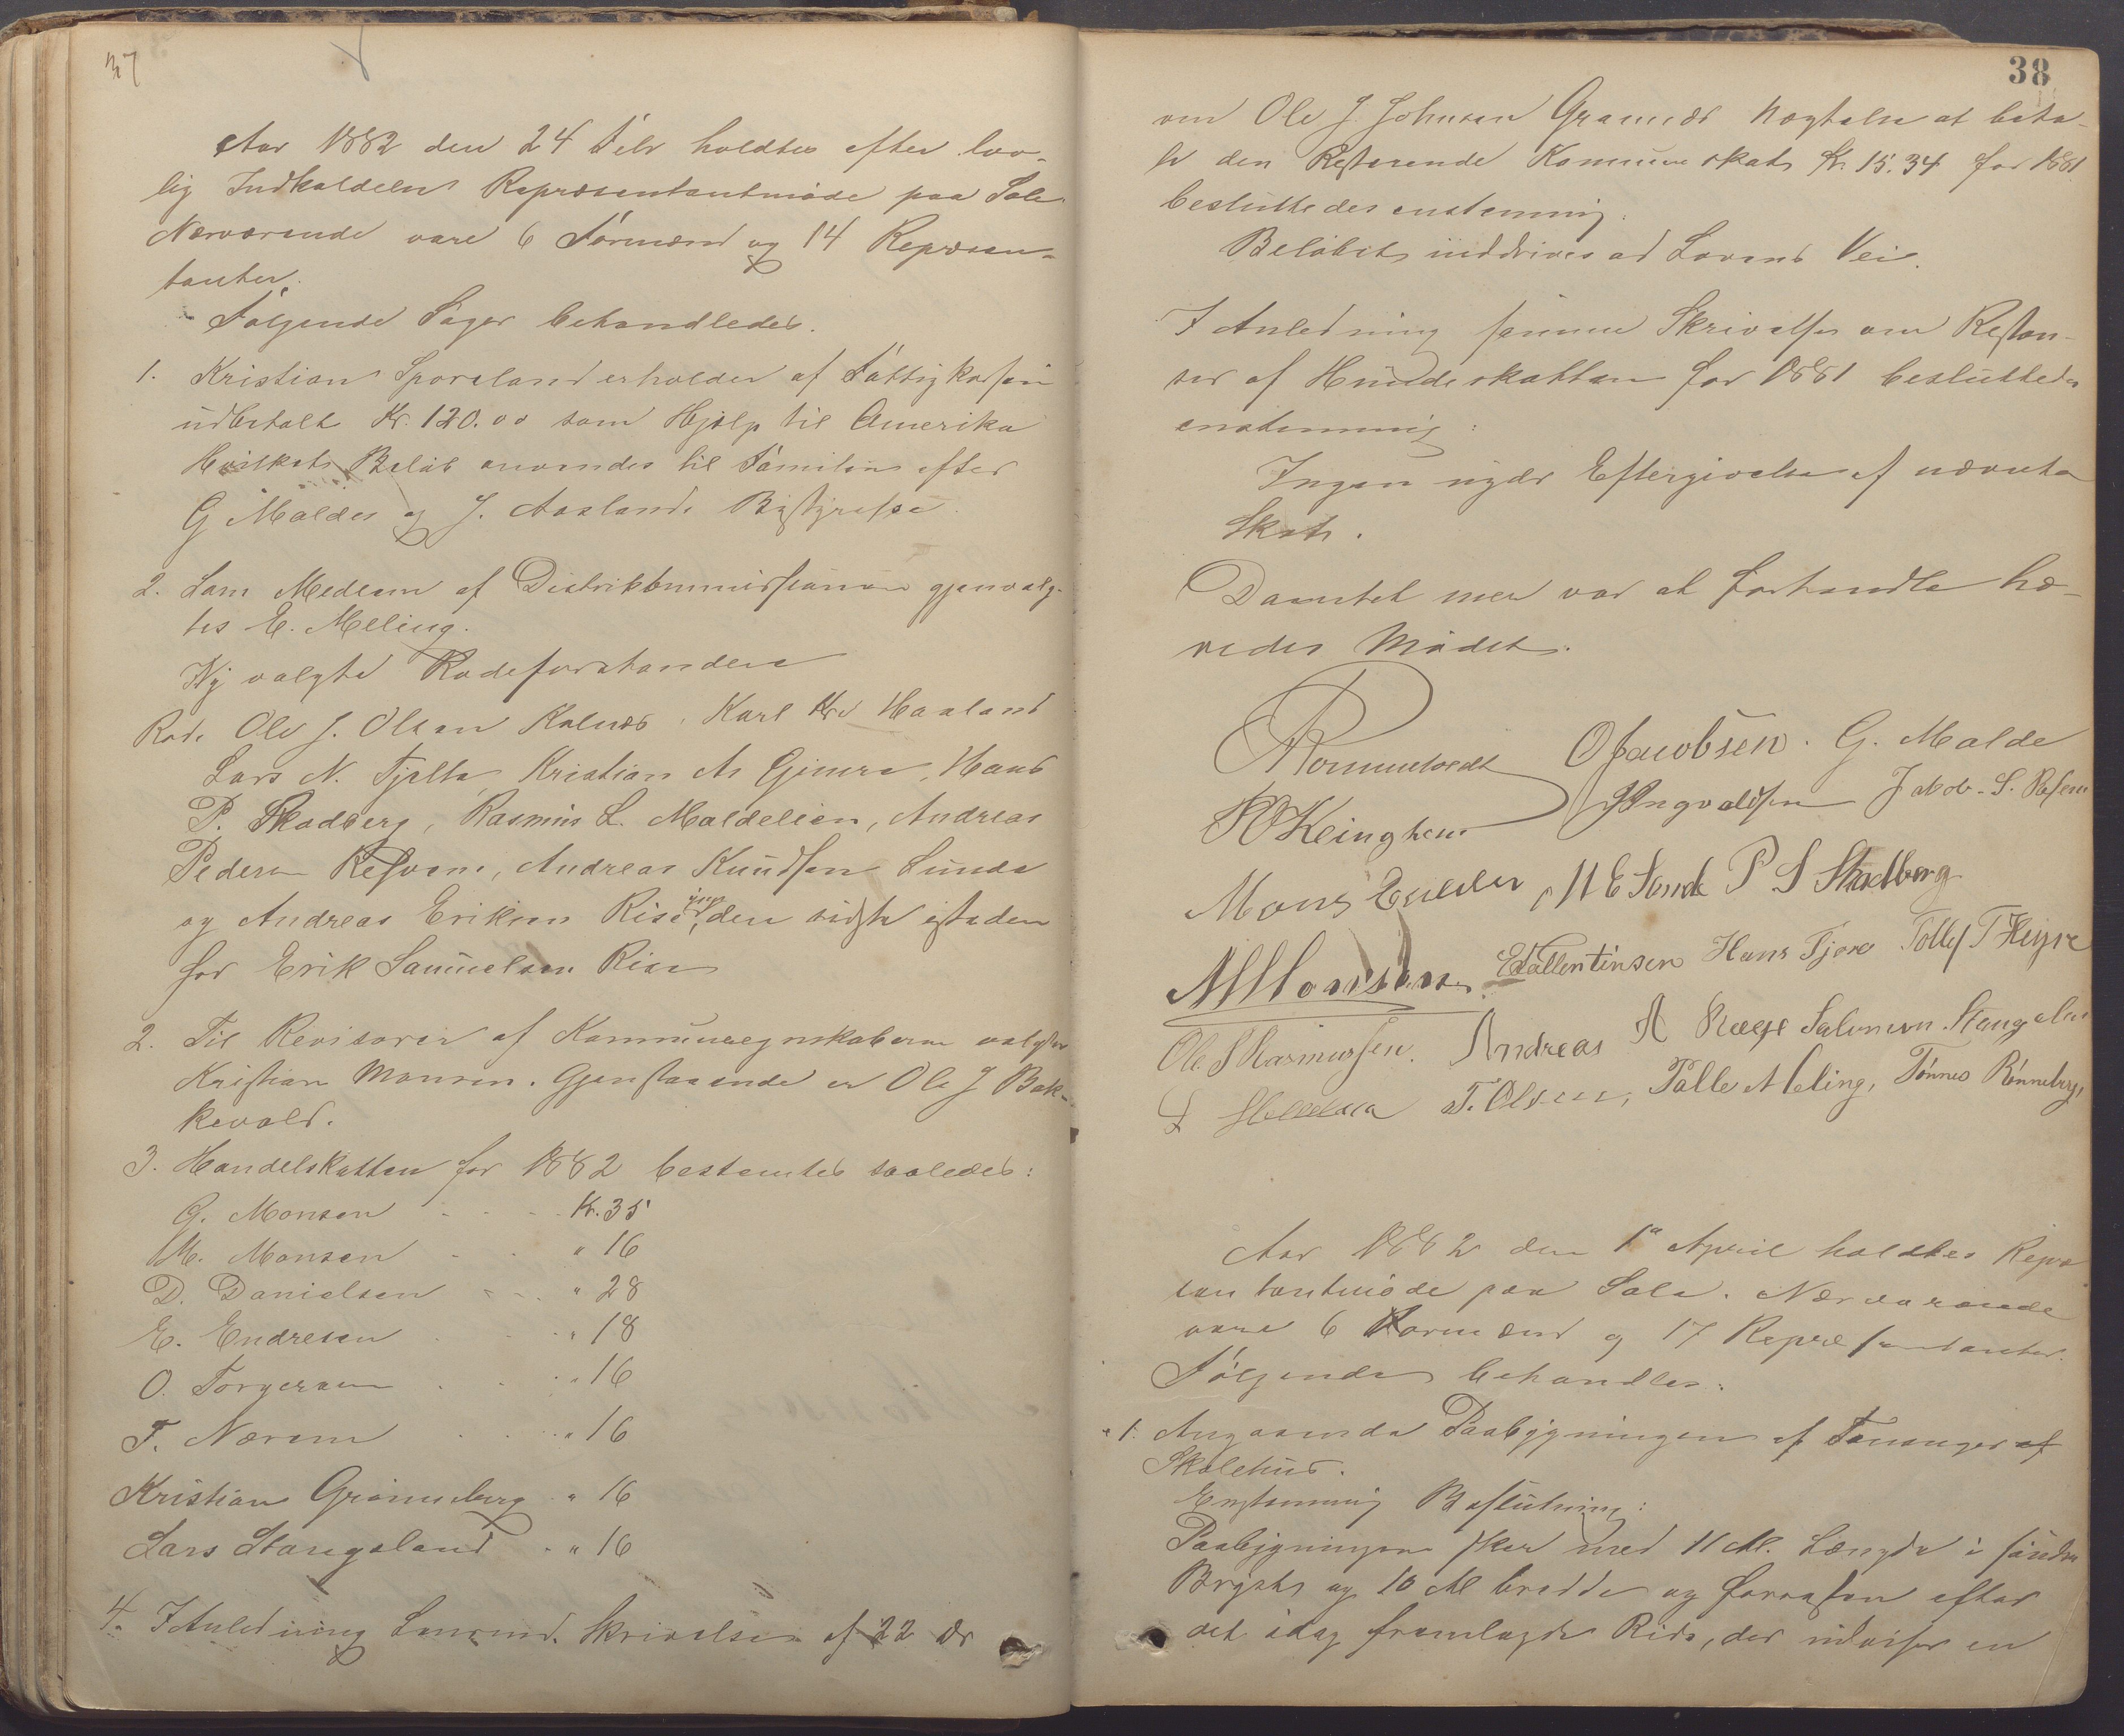 37
Aar 1882 den 24 Febr holdtes efter lov-
lig Indkaldelse Repræsentantmøde paa Sole
Nærværende vare 6 Formænd og 14 Repræsen-
tanter.
Følgende Sager behandledes.
1. Kristian Sporaland erholder af Fattigkassen
udbetalt Kr. 120.00 som Hjælp til Amerika
Hvilket Beløb anvendes til Familien efter
G Maldes og J. Aaslands Bestyrelse.
2. Som Medlem af Distriktkommissionen gjenvalg-
tes E. Meling.
Ny valgte Rodeforstandere
Rode Ole J. Olsen Kolnes, Karl Haaland
Lars N. Tjelta, Kristian A. Gimre, Hans
P. Skadberg, Rasmus L. Maldelien, Andreas
Pedersen Resvom, Andreas Knudsen Sunde
og Andreas Eriksen Rise, den sidste isteden
for Erik Samuelsen Rise
2. Til Revisorer af Kommuneregnskaberne valgtes
Kristian Monsen. Gjenstaaende er Ole J Bak-
kevold.
3. Handelskatten for 1882 bestemtes saaledes:
G. Monsen Kr. 35
M. Monsen " 16
D. Danielsen " 28
E. Endresen " 18
O. Torgersen " 16
T. Næsem " 16
Kristian Grønneberg " 16
Lars Stangeland " 16
4. I Anledning Lensmd. Skrivelse af 22 ds
38
om Ole J. Johnsen Grannes Nægtelse at beta-
le den Resterende Kommuneskat Kr. 15.34 for 1881
besluttedes enstemmig:
Beløbet inddrives ad Lovens Vei.
I Anledning samme Skrivelse om Restan-
ser af Hundeskatten for 1881 besluttedes
enstemmig:
Ingen nyder Eftergivelse af nævnte
Skat.
Da intet mer var at forhandle hæ-
vedes Mødet.
Rommetvedt O Jacobsen. G. Malde
Ingvaldsen Jakob S.
Mons M E Sande P S Skadberg
M Monsen E Vallentinsen Hans Tjora Tollef T Heigre
Ole S Rasmussen. Andreas A Ræge Salomon Stangelan
T. Olsen, Tølle Meling, Tønnes Rønneberg,
Aar 1882 den 1ste April holdtes Repræ
sentantmøde paa Sole. Nærværende
vare 6 Formænd og 17 Repræsentanter.
Følgende behandles:
1. Angaaende Paabygningen af Tananger af
Skolehus.
Enstemmig Beslutning:
Paabygningen sker med 11 Al. Længde i søndre
Bryst og 10 Al bredde og forresten efter
det idag fremlagde Rids, der udviser en